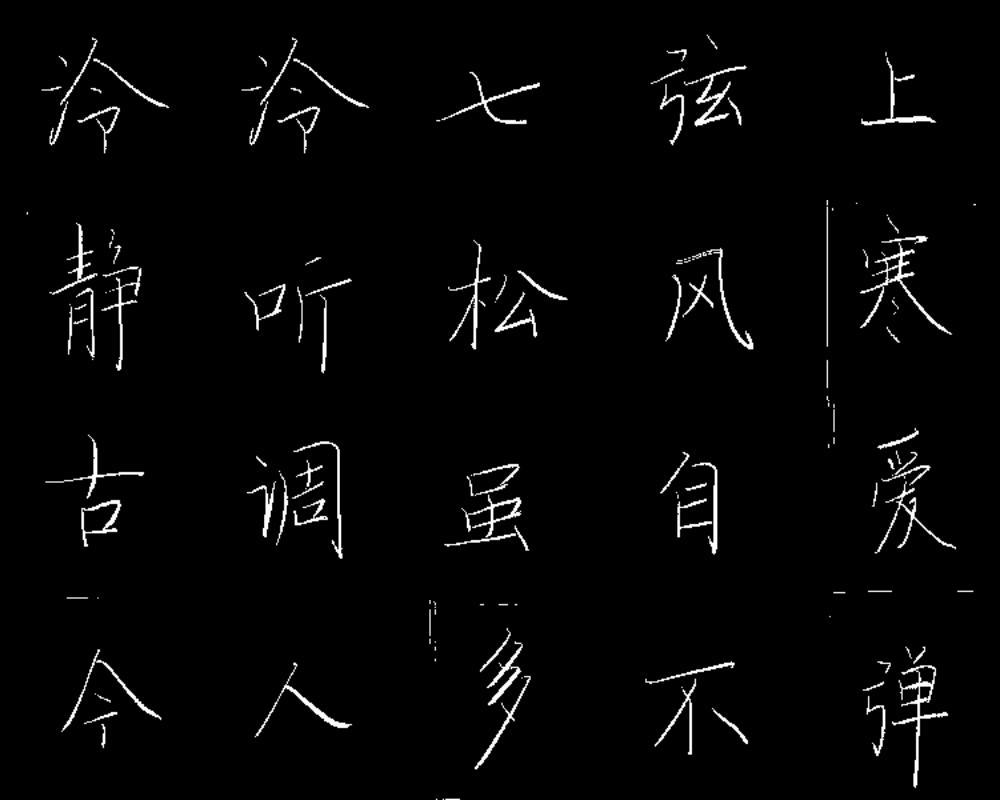 泠泠七弦上
静听松风寒
古调虽自爱
今人多不弹